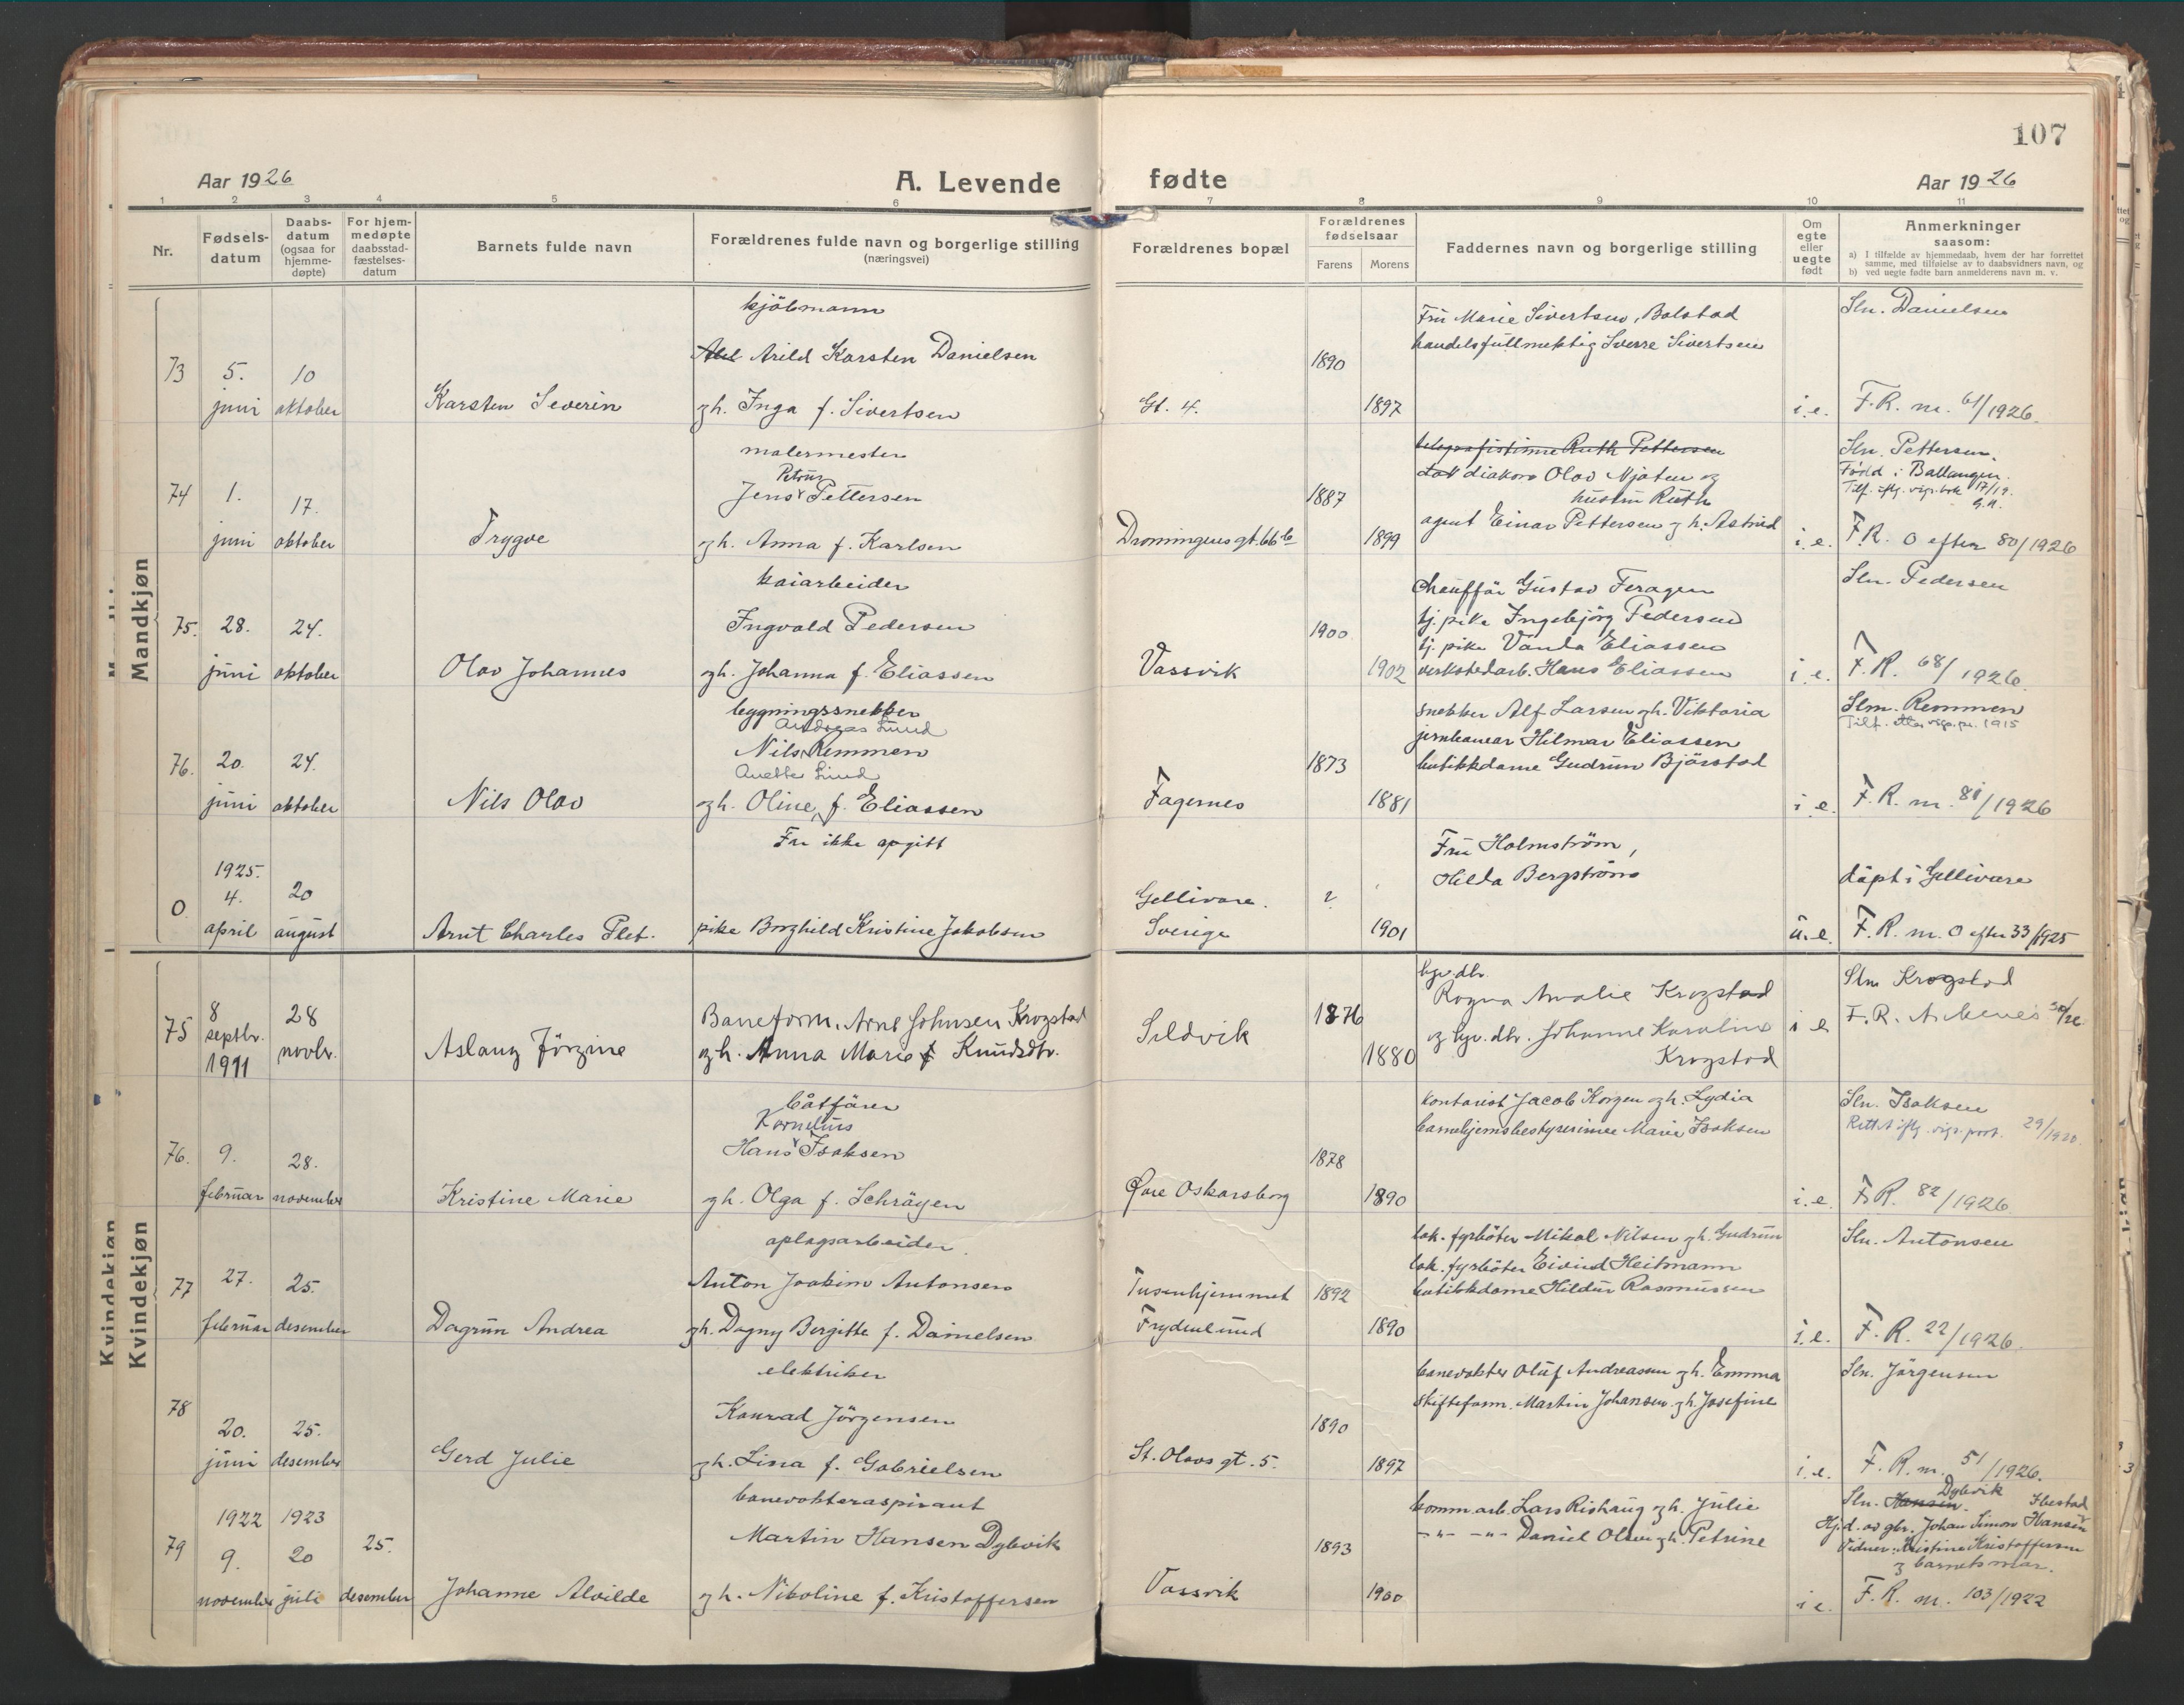 107
Aar 1926
A. Levende fødte
Aar 1926
1 2 3 4 5 6 7 8 9 10 11
Nr.
Fødselsdatum
Daabsdatum (ogsaa for hjemmedøpte)
For hjemmedøpte daabsstadfæstelsesdatum
Barnets fulde navn
Forældrenes fulde navn og borgerlige stilling (næringsvei)
Forældrenes bopæl
Forældrenes fødselsaar
Farens Morens
Faddernes navn og borgerlige stilling
Om egte eller uegte født
Anmerkninger saasom:
a) I tilfælde av hjemmedaab, hvem der har forrettet samme, med tilføielse av to daabsvidners navn, og
b) ved uegte fødte barn anmelderens navn m. v.
Mandkjøn
73
5. juni
10 oktober
Karsten Severin
kjöbmann
Arild Karsten Danielsen
gh. Inga f. Sivertsen
Gt. 4.
1890
1897
Fru Marie Sivertsen, Bolstad
handelsfullmektig Sverre Sivertsen
i. e.
Sln. Danielsen
F. R. nr. 61/1926.
74
1. juni
17. oktober
Trygve
malermester
Petrus
Jens Pettersen
gh. Anna f. Karlsen
Dronningensgt. 66 b
1887
1899
telegrafistinne Ruth Pettersen
diakon Olav Njaten og
hustru Ruth
agent Einar Pettersen gh. Astrid
i. e.
Sln. Pettersen.
Född i Ballangen.
F. R. 0 efter 80/1926
75.
28. juni
24. oktober
Olav Johannes
kaiarbeider
Ingvald Pedersen
gh. Johanna f. Eliassen
Vassvik
1900
1902
Chauffør Gustav Feragen
tj. pike Ingebjörg Pedersen
tj. pike Vanda Eliassen
verkstedarb. Hans Eliassen
i. e.
Sln. Pedersen
F. R. 68/1926.
76.
20. juni
24. oktober
Nils Olav
bygningssnekker
Andreas Lund
Nils Remmen
Anette Lund
gh. Oline f. Eliassen
Fagernes
1873
1881
snekker Alf Larsen gh. Viktoria
jernbanear Hilmar Eliassen
butikkdame Gudrun Bjørstad
i. e.
Slm. Remmen
F. R. nr. 81/1926
0
1925.
4. april
20 august
Arnt Charles Plet.
Far ikke opgitt
pike Borghild Kristine Jakobsen
Gellivare.
Sverige
?
1901
Fru Holmström,
Hilda Bergström
u. e.
döpt i Gellivare
F. R. nr. 0 efter 33/1925
Kvindekjøn
75
8 septbr. 1911
28 novbr.
Aslaug Jörgine
Baneform. Arne Johnsen Krogstad
gh. Anna Marie f Knudsdtr.
Sildvik
1876
1880
hjv. dtr.
Ragna Amalie Krogstad
og hjv. dtr. Johanne Karoline
Krogstad
i e
Sln Krogstad
76.
9. februar
28. november
Kristine Marie
båtfører
Kornelius
Hans Isaksen
gh. Olga f. Schrøyen
Øvre Oskarsborg
1878
1890
kontorist Jacob Korgen gh. Lydia
barnehjemsbestyrerinne Marie Isaksen
i. e.
Sln. Isaksen
F. R. 82/1926
77
27. februar
25. desember
Dagrun Andrea
oplagsarbeider.
Anton Joakim Antonsen
gh. Dagny Bergitte f. Danielsen
Tusenhjemmet
Frydenlund
1892
1890
lok. fyrböter Mikal Nilsen gh. Gudrun
lok. fyrböter Eivind Heitmann
butikkdame Hildur Rasmussen
i. e.
Sln. Antonsen
F. R. 22/1926.
78
20. juni
25. desember
Gerd Julie
elektriker
Konrad Jörgensen
gh. Lina f. Gabrielsen
St. Olavs gt. 5.
1890
1897
banevokter Oluf Andreassen gh. Emma
skifteform. Martin Johansen gh. Josefine
i. e.
Sln. Jörgensen
F. R. nr. 51/1926.
79
1922
9. november
1923
20 juli
25. desember
Johanne Alvilde
banevokteraspirant
Martin Hansen Dybvik
gh. Nikoline f. Kristoffersen
Vassvik
1893
1900
komm. arb. Lars Rishaug gh. Julie
-"- -"- Daniel Olsen gh. Petrine
i e.
Sln. Hansen. Dybvik
Ibestad
Hjd. av gbr. Johan Simon Hansen
Vidner: Kristine Kristoffersen
g barnets mor.
F. R. nr. 103/1922